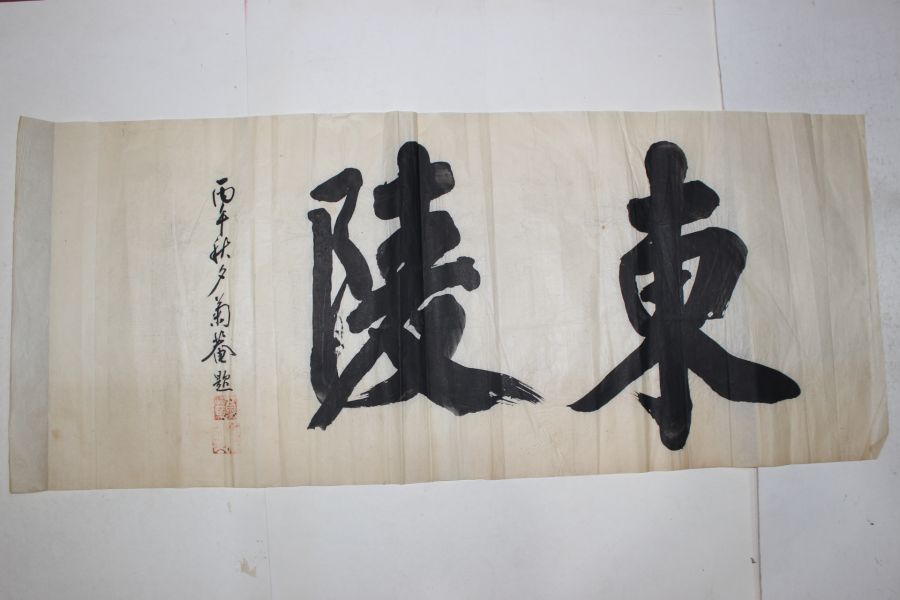 東陵
丙午秋夕菊菴題